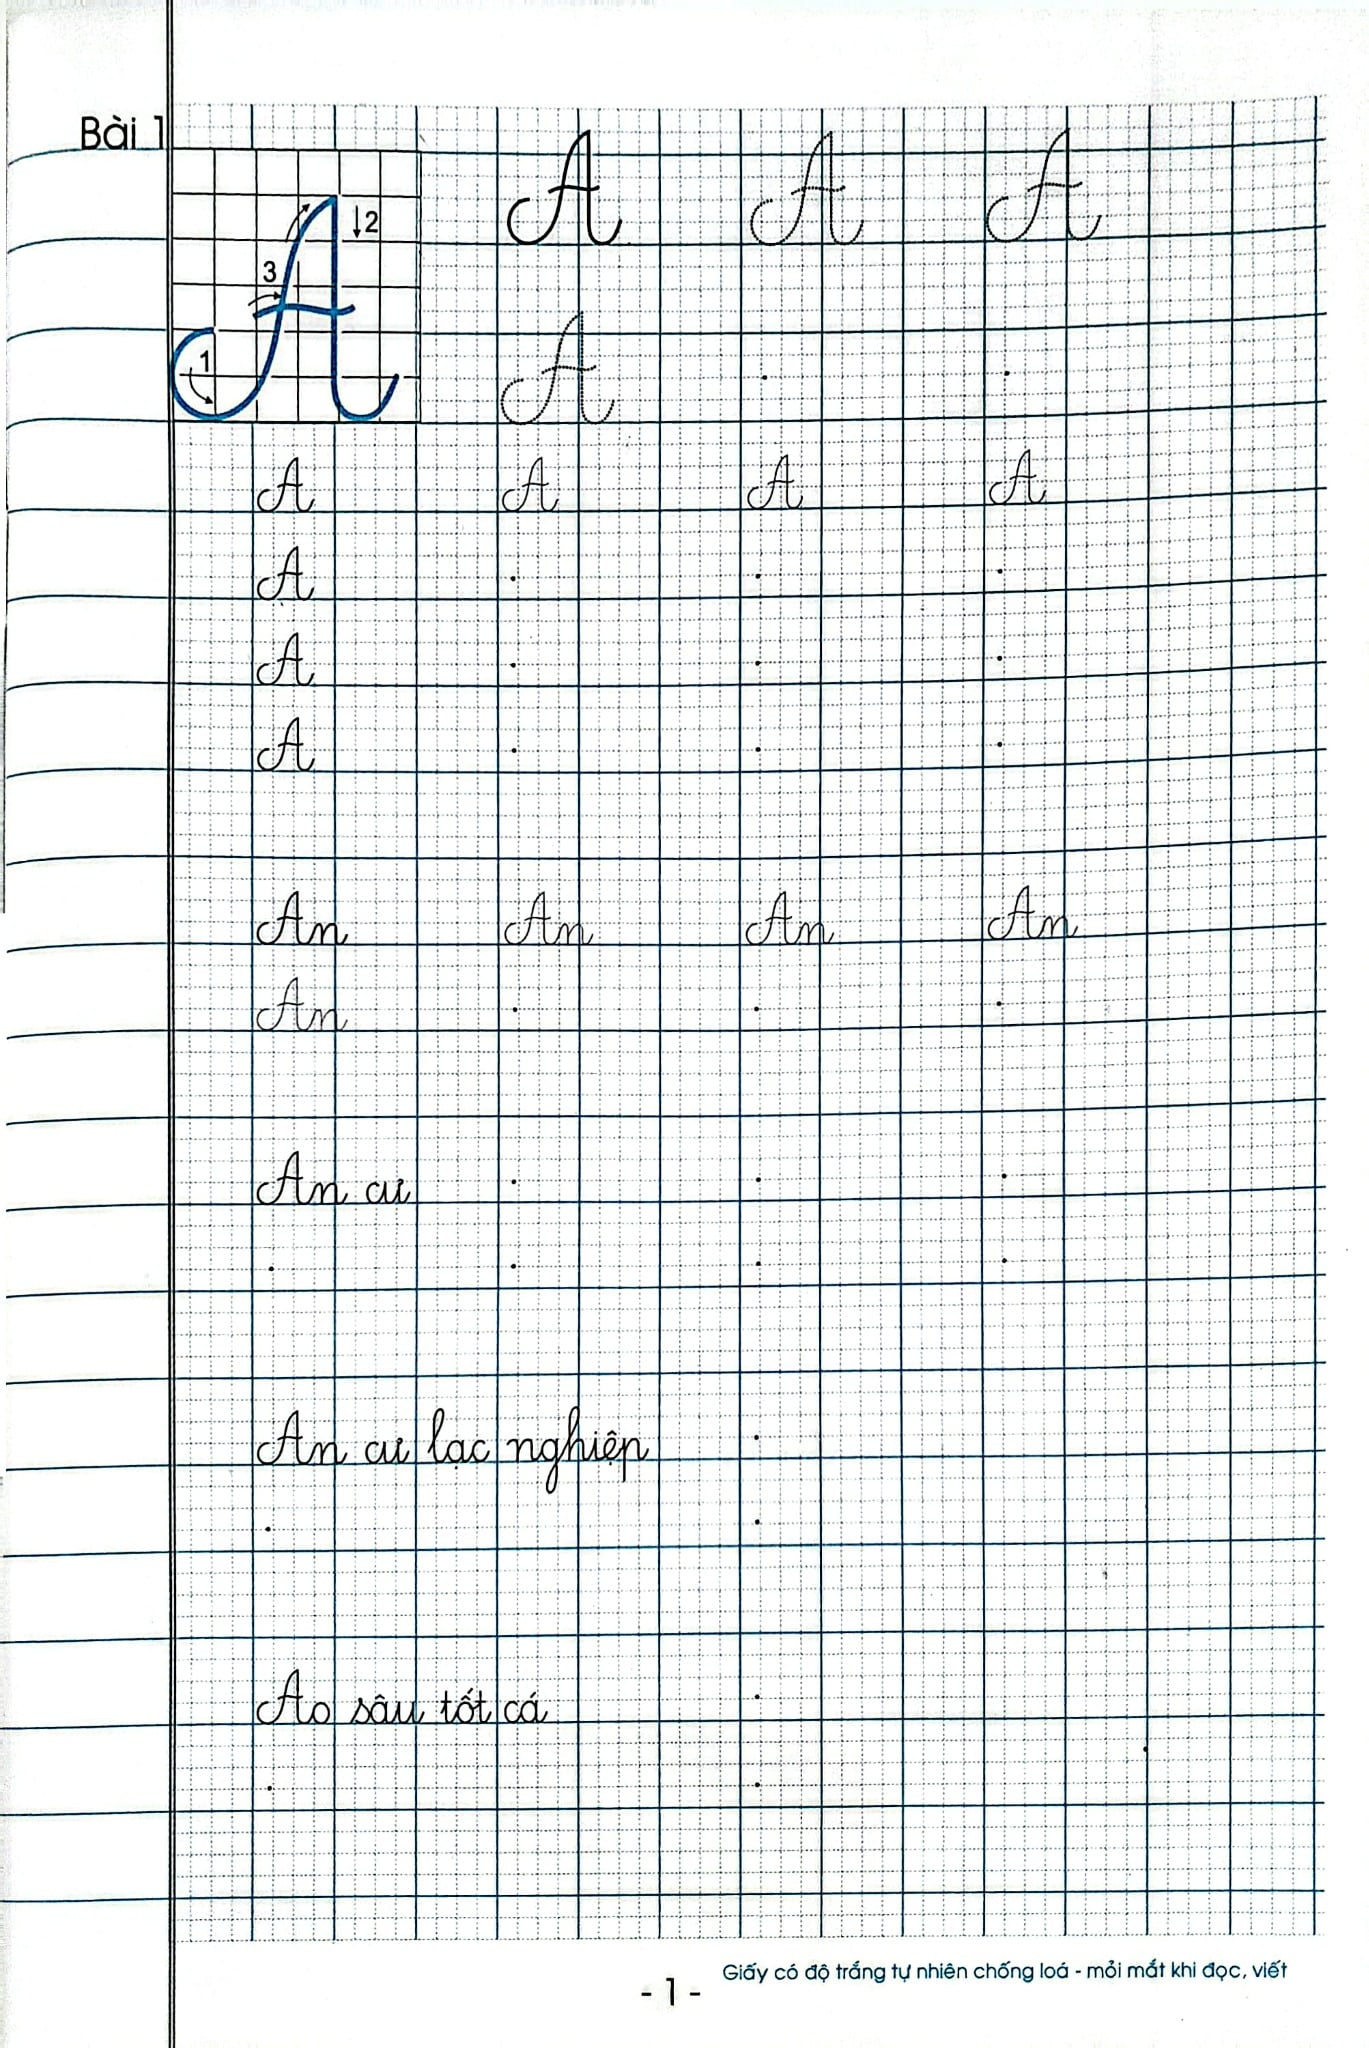 Bài 1
A A A
1 2 3
A
A A A A
A
A
A
An An An An
An
An cư
An cư lạc nghiệp
Ao sâu tốt cá
Giấy có độ trắng tự nhiên chống loá - mỏi mắt khi đọc, viết
- 1 -